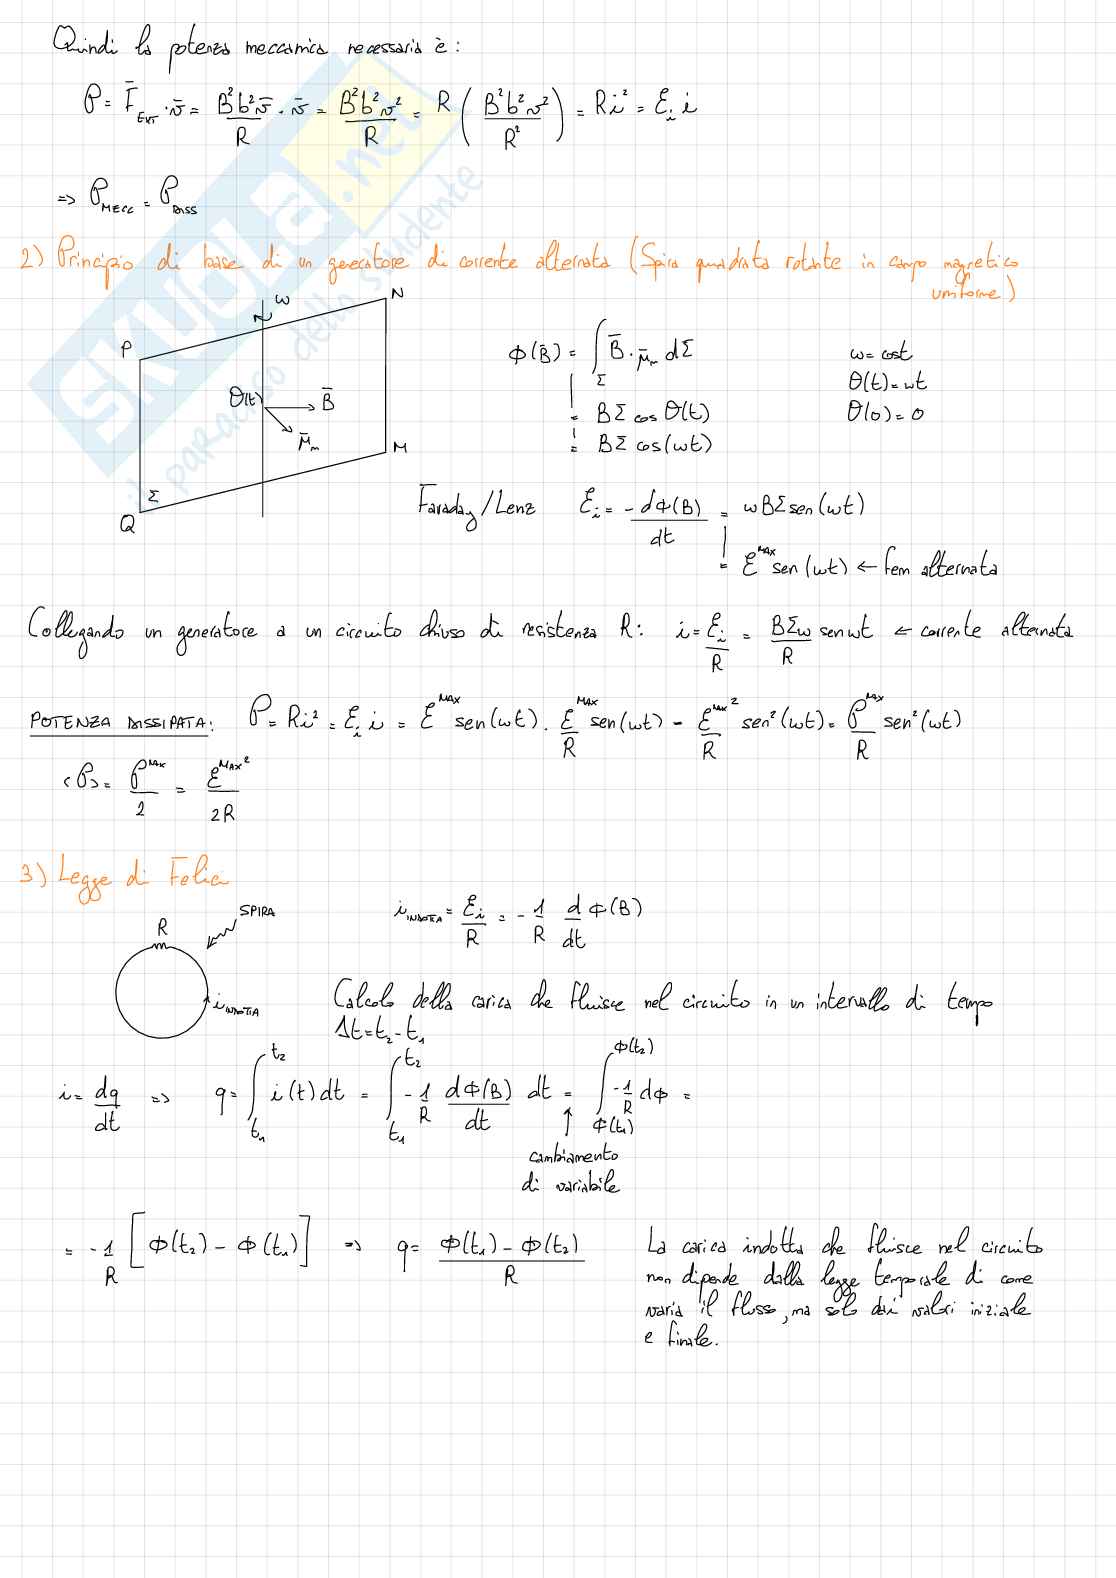 Quindi la potenza meccanica necessaria è:
P = F̄_EXT · v̄ = B²b²v̄/R · v̄ = B²b²v²/R = R (B²b²v²/R²) = Ri² = ℰ_i i
=> P_MECC = P_DISS
2) Principio di base di un generatore di corrente alternata (Spira quadrata rotante in campo magnetico
uniforme)
ω
N
P
θ(t)
B̄
μ̄_m
M
Σ
Q
Φ(B̄) = ∫_Σ B̄ · μ̄_m dΣ
= BΣ cos θ(t)
= BΣ cos(ωt)
ω = cost
θ(t) = ωt
θ(0) = 0
Faraday/Lenz ℰ_i = - dΦ(B)/dt = ωBΣ sen(ωt)
= ℰ^MAX sen(ωt) ← fem alternata
Collegando un generatore a un circuito chiuso di resistenza R: i = ℰ_i/R = BΣω/R sen ωt ← corrente alternata
POTENZA DISSIPATA: P = Ri² = ℰ_i i = ℰ^MAX sen(ωt) · ℰ^MAX/R sen(ωt) - ℰ^MAX²/R sen²(ωt) = P^MAX/R sen²(ωt)
<P> = P^MAX/2 = ℰ^MAX²/2R
3) Legge di Felici
SPIRA
R
i_INDOTTA
i_INDOTTA = ℰ_i/R = - 1/R d/dt Φ(B)
Calcolo della carica che fluisce nel circuito in un intervallo di tempo
Δt = t₂ - t₁
i = dq/dt => q = ∫_{t₁}^{t₂} i(t) dt = ∫_{t₁}^{t₂} - 1/R dΦ(B)/dt dt = ∫_{Φ(t₁)}^{Φ(t₂)} - 1/R dΦ =
↑
cambiamento
di variabile
= - 1/R [Φ(t₂) - Φ(t₁)] => q = Φ(t₁) - Φ(t₂)/R
La carica indotta che fluisce nel circuito
non dipende dalla legge temporale di come
varia il flusso, ma solo dai valori iniziale
e finale.
SKUOLA.net
il paradiso dello studente